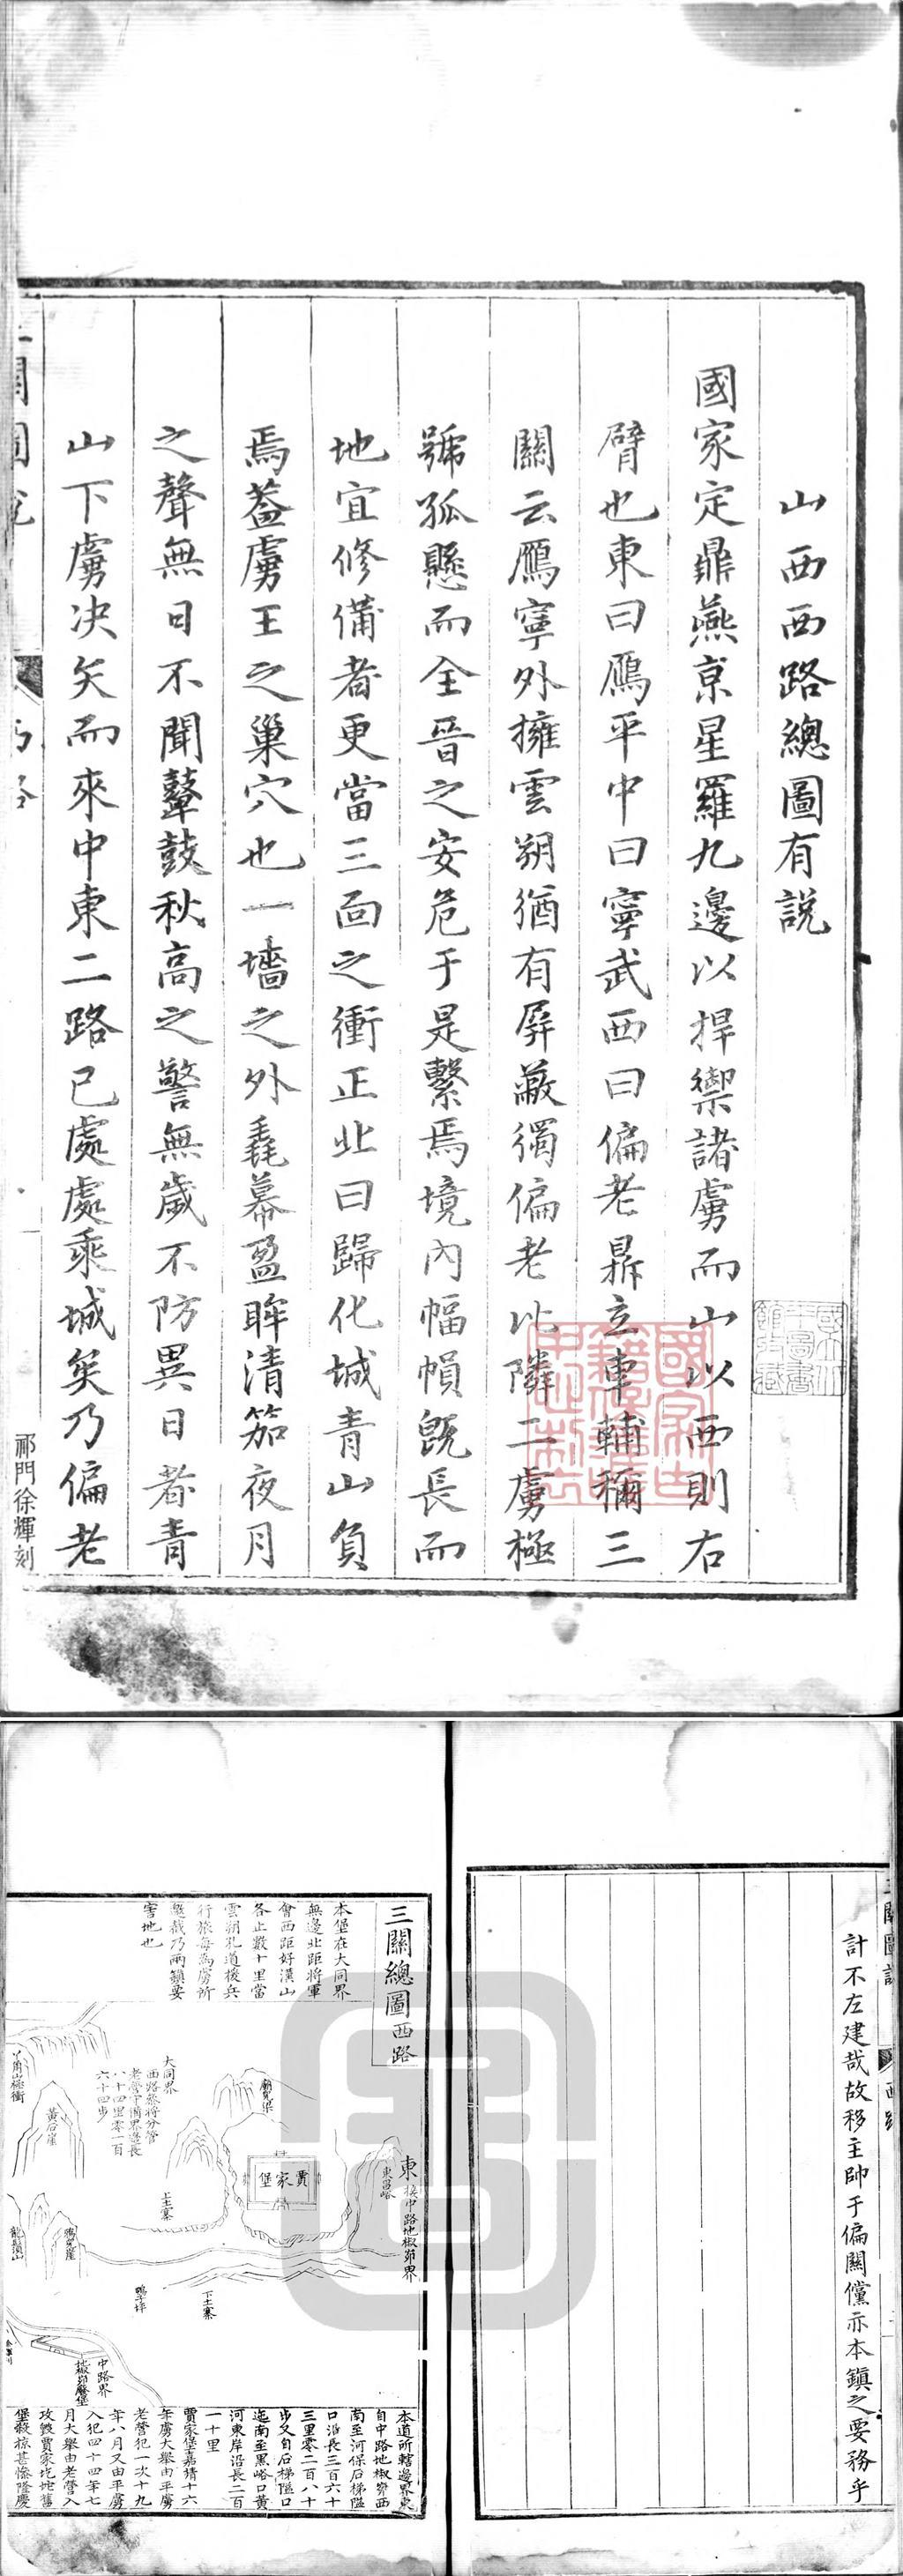 山西西路總圖有說
國家定鼎燕京星羅九邊以捍禦諸虜而山以西則右
臂也東曰鴈平中曰寧武西曰偏老鼎立車輔稱三
關云鴈寧外擁雲朔猶有屏蔽獨偏老比隣二虜極
號孤懸而全晉之安危于是繫焉境內幅幀旣長而
地宜修備者更當三面之衝正北曰歸化城青山負
焉蓋虜王之巢穴也一墻之外毳幕盈眸清笳夜月
之聲無日不聞鼙鼓秋高之警無歲不防異日者青
山下虜决矢而來中東二路已處處乘城矣乃偏老
關圖說
西路
祁門徐輝刻
三關圖說
西路
計不左建哉故移主帥于偏關儻亦本鎮之要務乎
三關總圖西路
本堡在大同界
無邊北距將軍
會西距好漢山
各止數十里當
雲朔孔道援兵
行旅每為虜所
邀截乃兩鎮要
害地也
大同界
西路叅將分管
老營守備界邊長
八十四里零一百
六十四步
賈家堡
東
接中路地椒峁界
東昌峪
上土寨
下土寨
黃石崖
鴨子坪
中路界
地椒峁廢堡
本道所轄邊界東
自中路地椒峁西
南至河保石梯隘
口沿長三百六十
三里零二百八十
步又自石梯隘口
迤南至黑峪口黃
河東岸沿長二百
一十里
賈家堡嘉靖十六
年虜大舉由平虜
老營犯一次十九
年八月又由平虜
入犯四十四年七
月大舉由老營入
攻毀賈家圪坨舊
堡殺掠甚慘隆慶